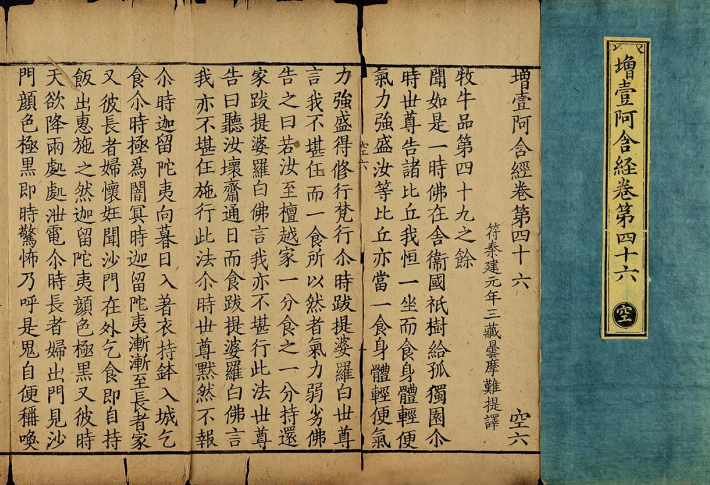 增壹阿含経卷第四十六 空
增壹阿含經卷第四十六 空六
符秦建元年三藏曇摩難提譯
牧牛品第四十九之餘
聞如是一時佛在舍衞國祇樹給孤獨園尒
時世尊告諸比丘我恒一坐而食身體輕便
氣力強盛汝等比丘亦當一食身體輕便氣
空六
力強盛得修行梵行尒時跋提婆羅白世尊
言我不堪任而一食所以然者氣力弱劣佛
告之曰若汝至檀越家一分食之一分持還
家跋提婆羅白佛言我亦不堪行此法世尊
告曰聽汝壞齋通日而食跋提婆羅白佛言
我亦不堪任施行此法尒時世尊黙然不報
尒時迦留陀夷向暮日入著衣持鉢入城乞
食尒時極爲闇冥時迦留陀夷漸漸至長者家
又彼長者婦懷妊聞沙門在外乞食即自持
飯出惠施之然迦留陀夷顔色極黑又彼時
天欲降雨處處泄電尒時長者婦出門見沙
門顔色極黑即時驚怖乃呼是鬼自便稱喚